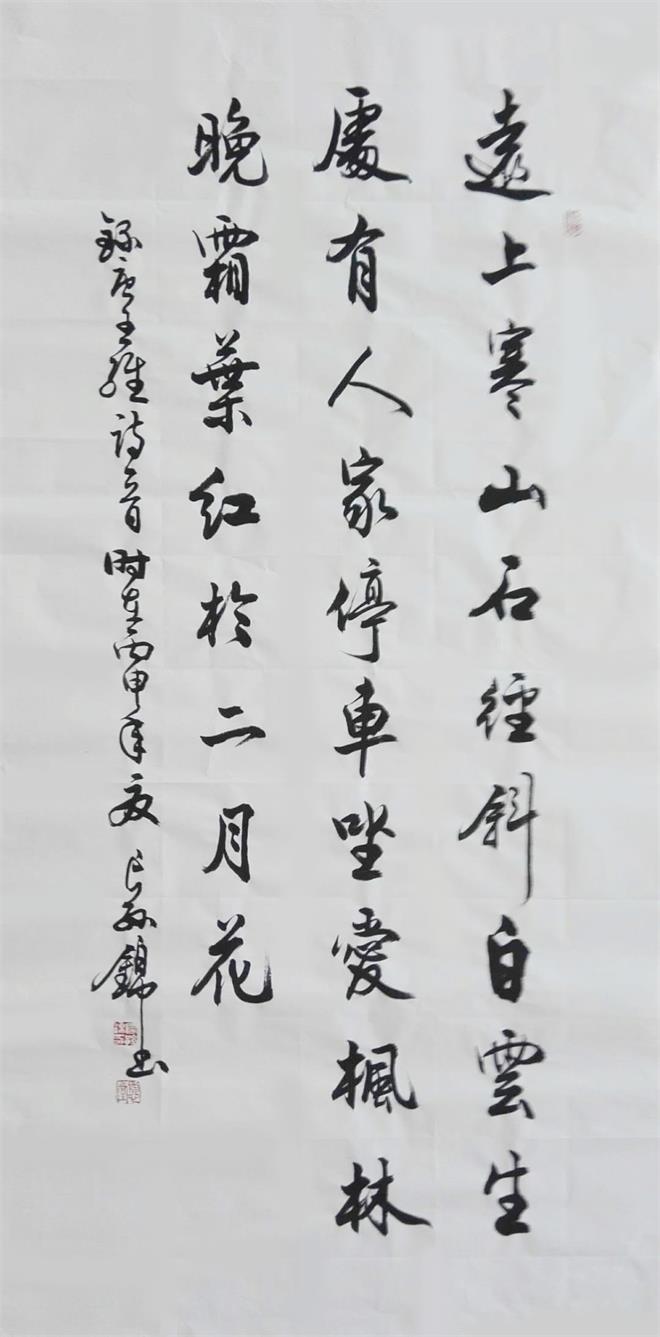 遠上寒山石徑斜白雲生
處有人家停車坐愛楓林
晚霜葉紅於二月花
錄唐王維詩一首时在丙申年夏錦书